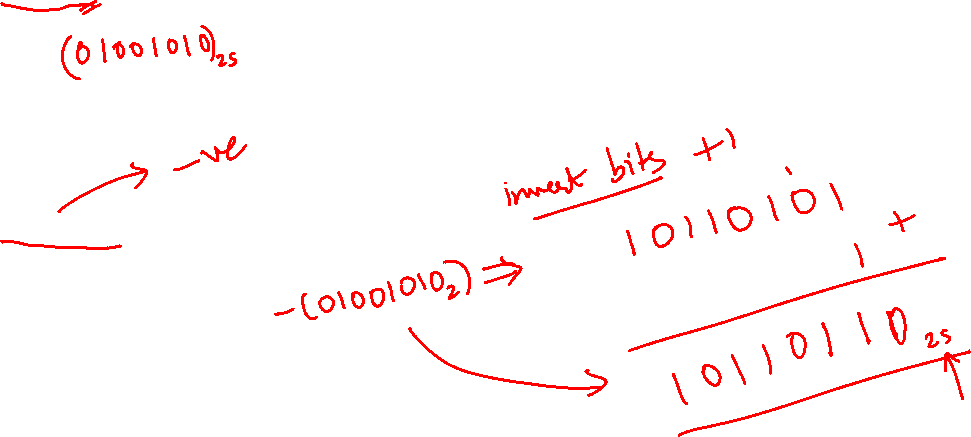 (01001010)2s
-ve
invert bits +1
10110101
1 +
-(010010102) ⇒
101101102s